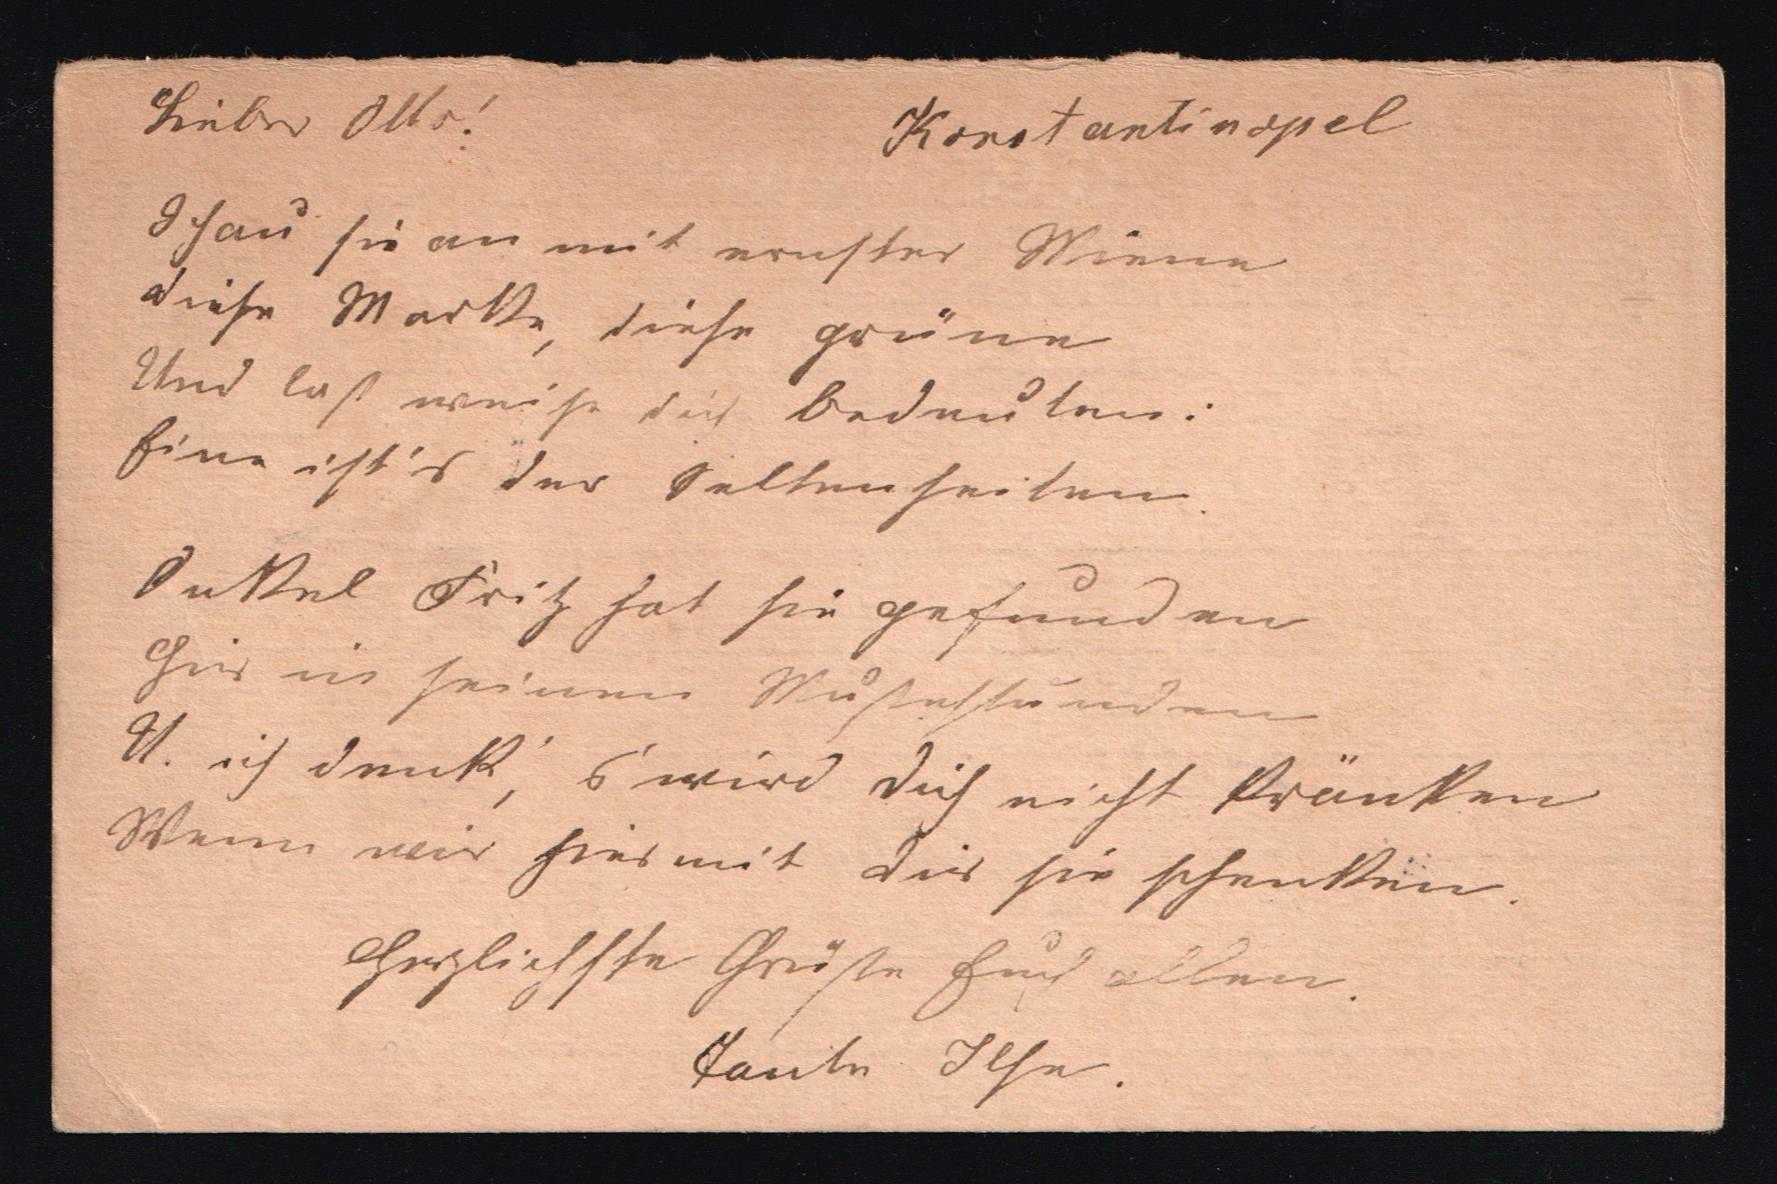 Lieber Otto! Konstantinopel
Schau sie an mit ernster Miene
diese Marke, diese grüne
Und laß weise dich bedeuten:
Eine ist's der Seltenheiten.
Onkel Fritz hat sie gefunden
Hier in seinen Mußestunden
U. ich denk', s'wird dich nicht kränken
Wenn wir hiermit dir sie schenken.
Herzlichste Grüße Euch allen.
Tante Ilse.